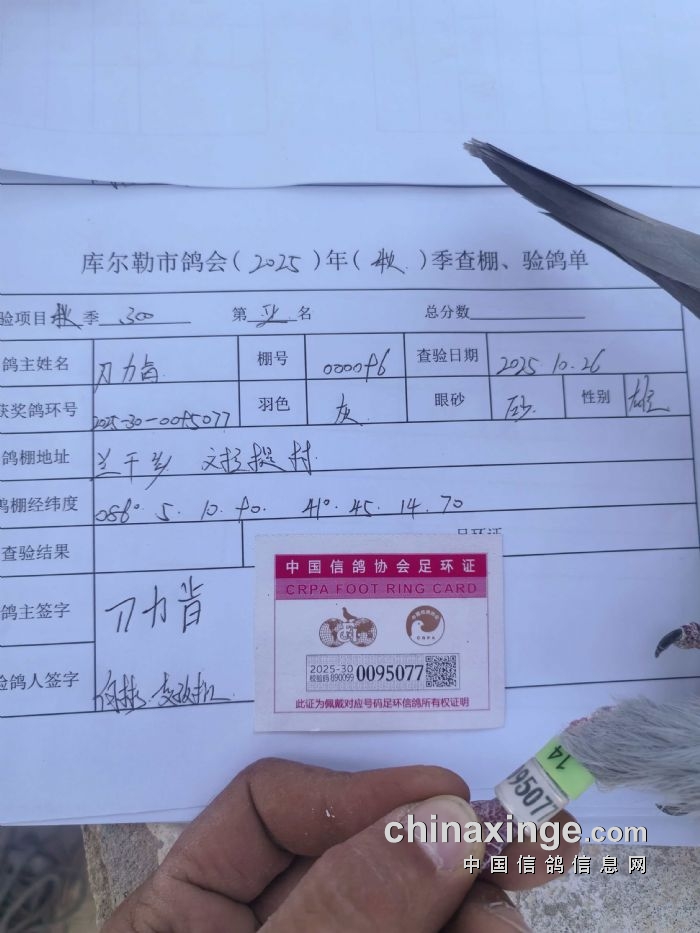 库尔勒市鸽会(2025)年(秋)季查棚、验鸽单
验项目秋季 300 第 名 总分数
鸽主姓名 刀力肯 棚号 000096 查验日期 2025.10.26
获奖鸽环号 2025-30-0095077 羽色 灰 眼砂 砂 性别 雄
鸽棚地址 兰干乡 村
鸽棚经纬度 086° 5. 10. 90. 41°. 45. 14. 70
查验结果 足环证
鸽主签字 刀力肯
验鸽人签字
中国信鸽协会足环证
CRPA FOOT RING CARD
CRPA
2025-30
校验码 890099
0095077
此证为佩戴对应号码足环信鸽所有权证明
14
095077
chinaxinge.com
中国信鸽信息网